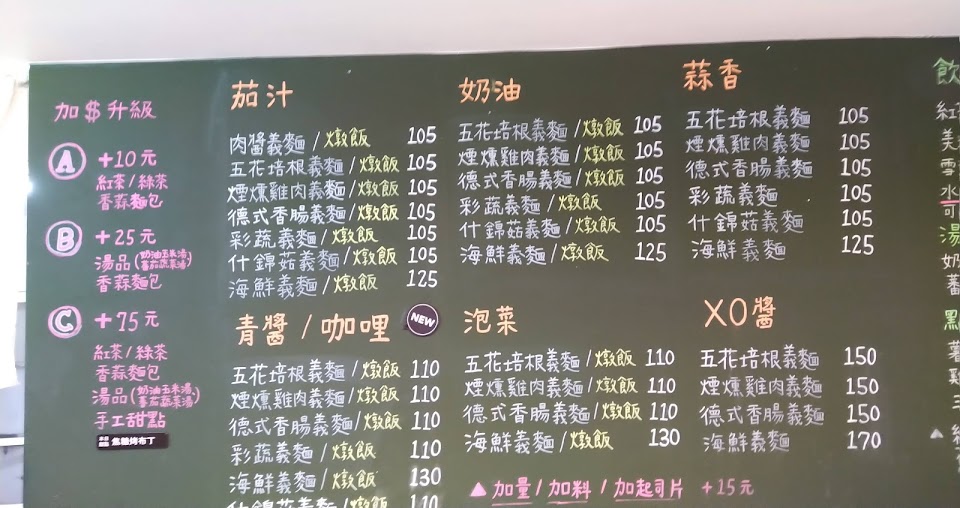 加$升級
A +10元
紅茶/綠茶
香蒜麵包
B +25元
湯品(奶油玉米湯、蕃茄蔬菜湯)
香蒜麵包
C +75元
紅茶/綠茶
香蒜麵包
湯品(奶油玉米湯、蕃茄蔬菜湯)
手工甜點
焦糖烤布丁
茄汁
肉醬義麵/燉飯 105
五花培根義麵/燉飯 105
煙燻雞肉義麵/燉飯 105
德式香腸義麵/燉飯 105
彩蔬義麵/燉飯 105
什錦菇義麵/燉飯 105
海鮮義麵/燉飯 125
青醬/咖哩 NEW
五花培根義麵/燉飯 110
煙燻雞肉義麵/燉飯 110
德式香腸義麵/燉飯 110
彩蔬義麵/燉飯 110
海鮮義麵/燉飯 130
什錦菇義麵/燉飯 110
奶油
五花培根義麵/燉飯 105
煙燻雞肉義麵/燉飯 105
德式香腸義麵/燉飯 105
彩蔬義麵/燉飯 105
什錦菇義麵/燉飯 105
海鮮義麵/燉飯 125
泡菜
五花培根義麵/燉飯 110
煙燻雞肉義麵/燉飯 110
德式香腸義麵/燉飯 110
海鮮義麵/燉飯 130
蒜香
五花培根義麵 105
煙燻雞肉義麵 105
德式香腸義麵 105
彩蔬義麵 105
什錦菇義麵 105
海鮮義麵 125
XO醬
五花培根義麵 150
煙燻雞肉義麵 150
德式香腸義麵 150
海鮮義麵 170
▲加量/加料/加起司片 +15元
飲
紅
美
雪
水
可
湯
奶
蕃